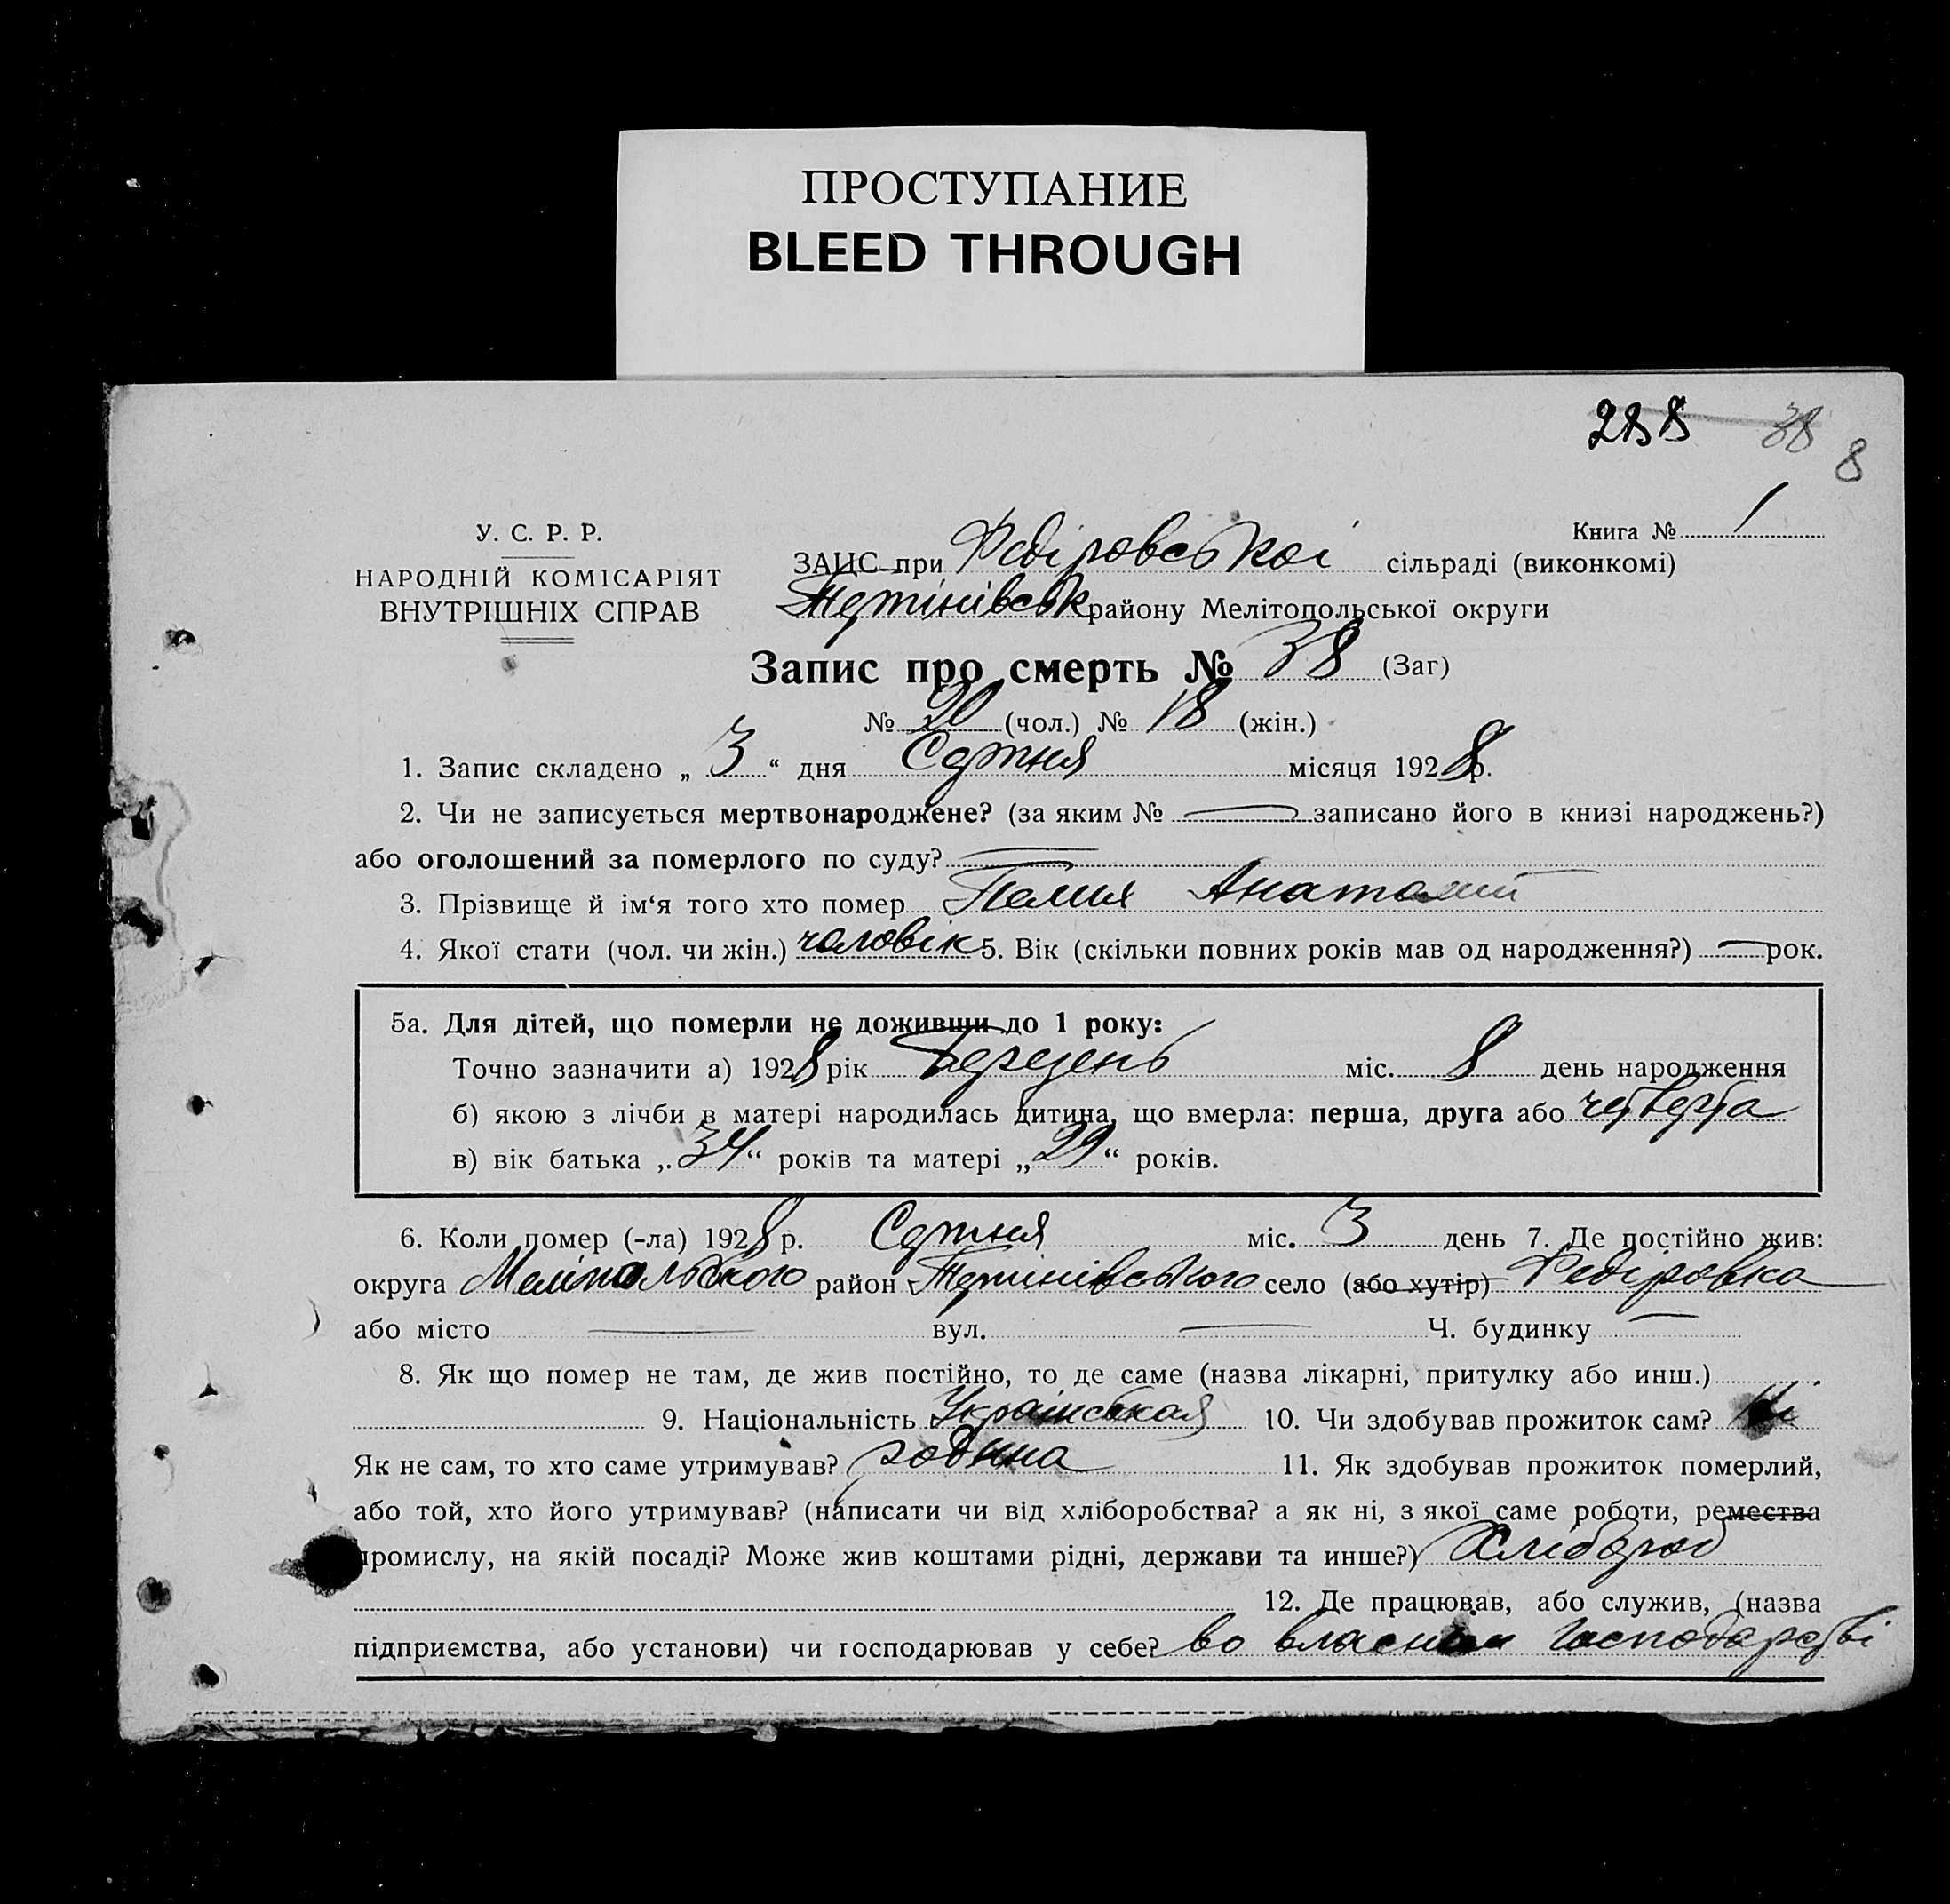 ПРОСТУПАНИЕ
BLEED THROUGH
288 38
8
У. С. Р. Р.
НАРОДНІЙ КОМІСАРІЯТ
ВНУТРІШНІХ СПРАВ
Книга № 1
ЗАЦС при Федіровської сільраді (виконкомі)
району Мелітопольської округи
Запис про смерть № 38 (Заг)
№ 20 (чол.) № 18 (жін.)
1. Запис складено „ 3 “ дня Серпня місяця 1928 р.
2. Чи не записується мертвонароджене? (за яким № записано його в книзі народжень?)
або оголошений за померлого по суду?
3. Прізвище й ім‘я того хто помер Анатолий
4. Якої стати (чол. чи жін.) чоловік 5. Вік (скільки повних років мав од народження?) — рок.
5а. Для дітей, що померли не доживши до 1 року:
Точно зазначити а) 1928 рік Березень міс. 8 день народження
б) якою з лічби в матері народилась дитина, що вмерла: перша, друга або четверта
в) вік батька „ 34 “ років та матері „ 29 “ років.
6. Коли помер (-ла) 1928 р. Серпня міс. 3 день 7. Де постійно жив:
округа район село (або хутір) Федіровка
або місто — вул. — Ч. будинку —
8. Як що помер не там, де жив постійно, то де саме (назва лікарні, притулку або инш.)
9. Національність Українська 10. Чи здобував прожиток сам?
Як не сам, то хто саме утримував? родина 11. Як здобував прожиток померлий,
або той, хто його утримував? (написати чи від хліборобства? а як ні, з якої саме роботи, ремества
промислу, на якій посаді? Може жив коштами рідні, держави та инше?) Хлібороб
12. Де працював, або служив, (назва
підприємства, або установи) чи господарював у себе? во власном господарстві